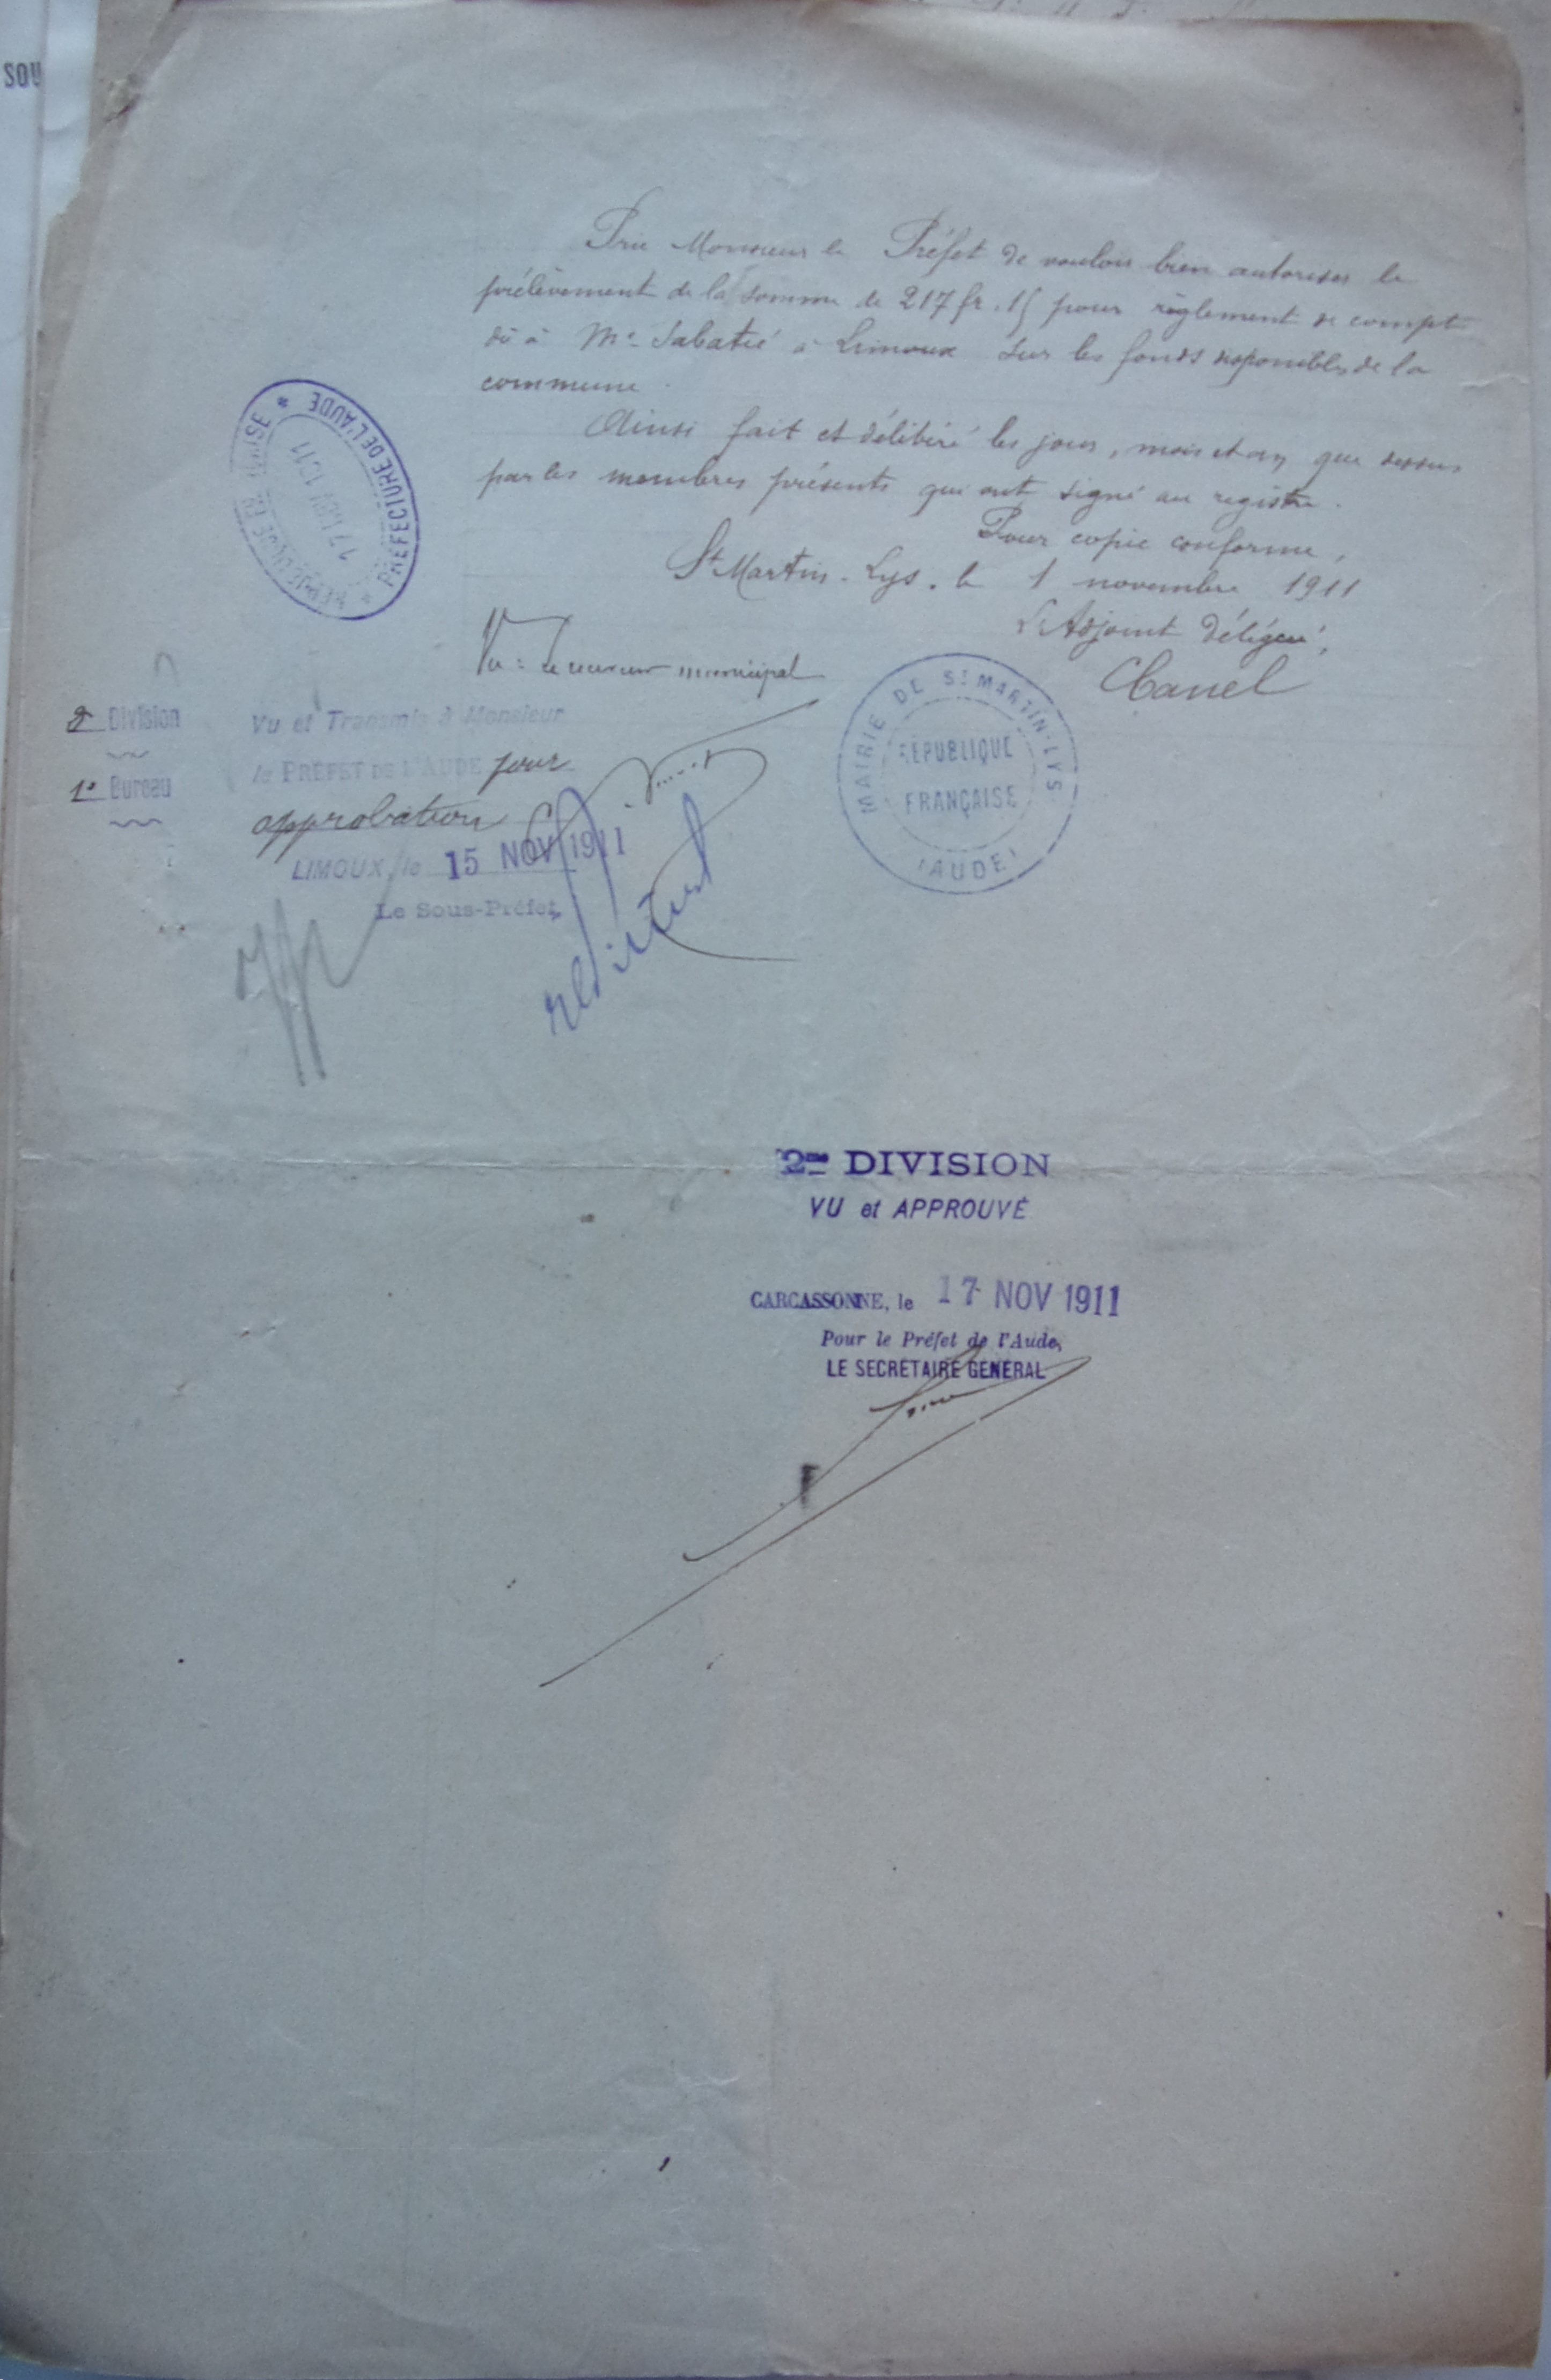 SOU
Prie Monsieur le Préfet de vouloir bien autoriser le
prélèvement de la somme de 217 fr. 15 pour règlement de compte
dû à Me Sabatié à Limoux sur les fonds disponibles de la
commune.
Ainsi fait et délibéré les jour, mois et an que dessus
par les membres présents qui ont signé au registre.
Pour copie conforme,
St Martin-Lys, le 1 novembre 1911
L'Adjoint délégué,
Canel
PRÉFECTURE DE L'AUDE
17 NOV 1911
Vu : Le receveur municipal
MAIRIE DE ST MARTIN-LYS
RÉPUBLIQUE
FRANÇAISE
(AUDE)
2e Division
1er Bureau
Vu et Transmis à Monsieur
le PRÉFET DE L'AUDE pour
approbation
LIMOUX, le 15 NOV 1911
Le Sous-Préfet,
2me DIVISION
VU et APPROUVÉ
CARCASSONNE, le 17 NOV 1911
Pour le Préfet de l'Aude,
LE SECRÉTAIRE GÉNÉRAL